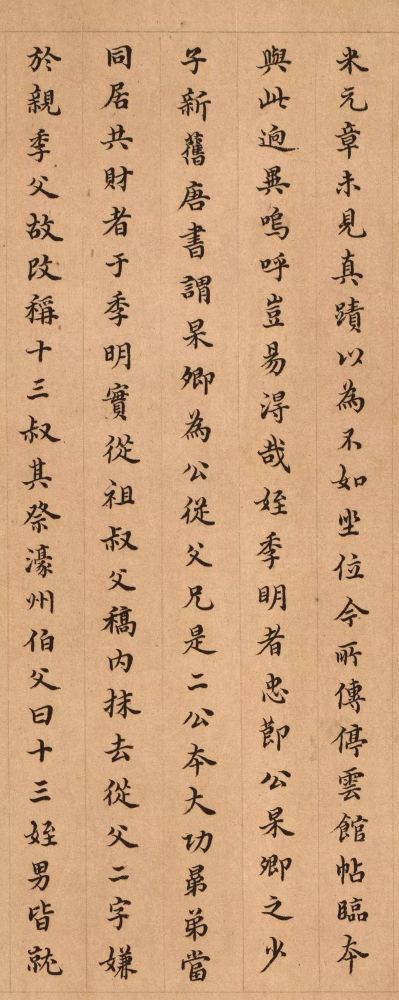 米元章未見真蹟以為不如坐位今所傳停雲館帖臨本
與此逈異嗚呼豈易得哉姪季明者忠節公杲卿之少
子新舊唐書謂杲卿為公從父兄是二公本大功昴弟當
同居共財者于季明實從祖叔父稿內抹去從父二字嫌
於親季父故改稱十三叔其祭濠州伯父曰十三姪男皆就